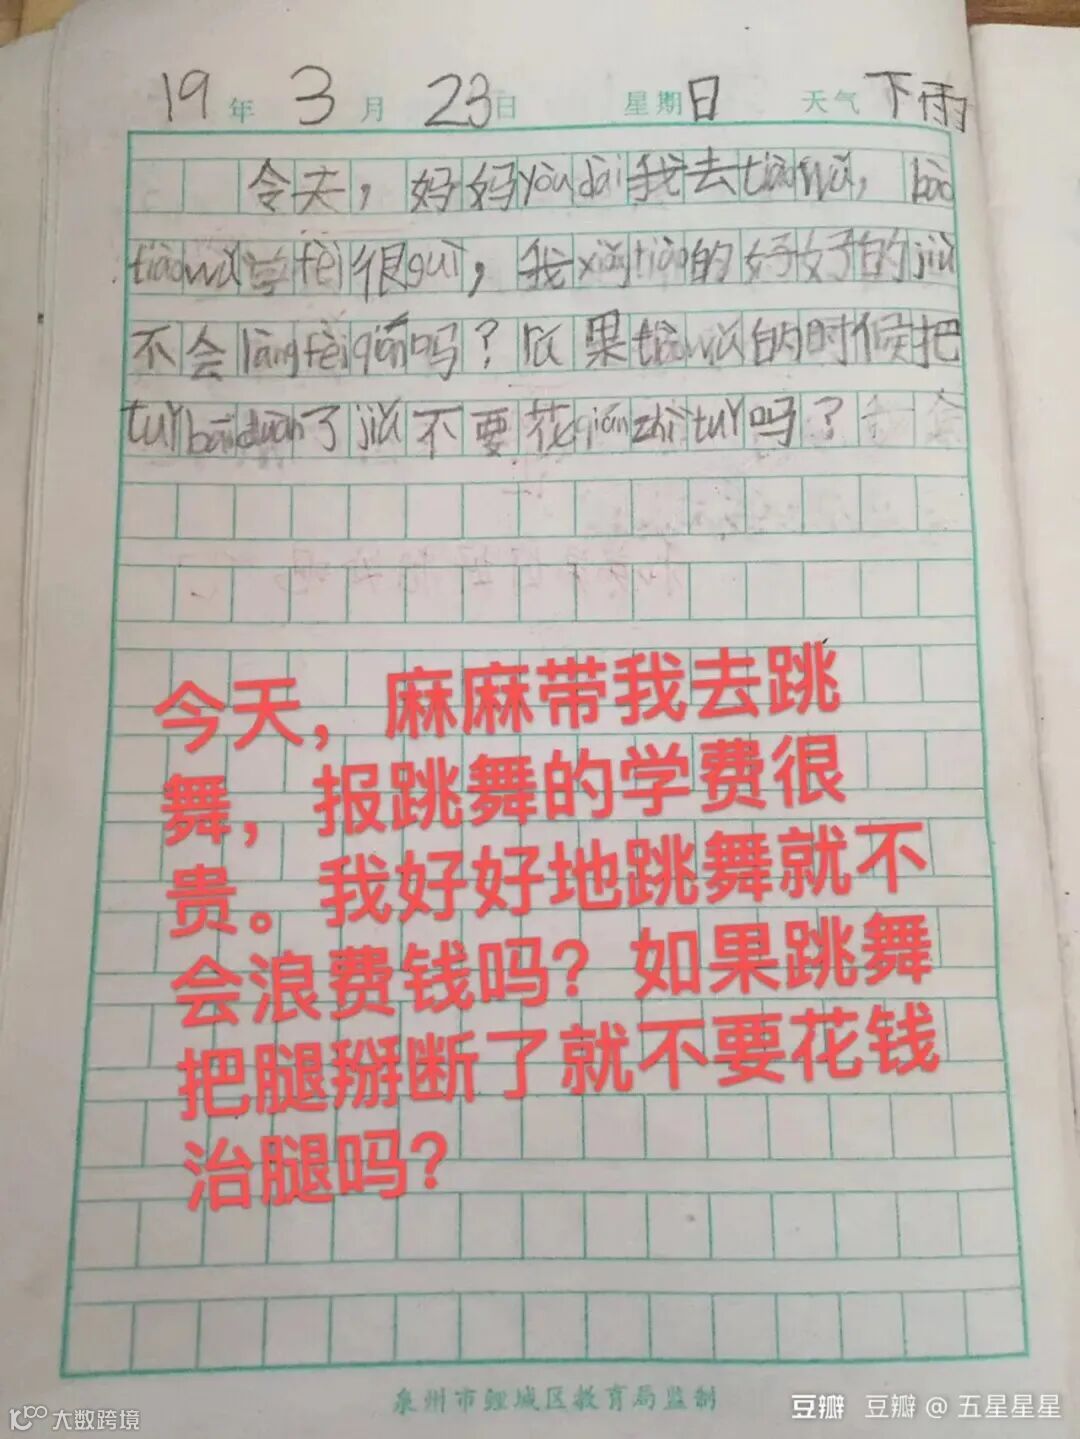 19年 3月 23日 星期日 天气下雨
今天，妈妈yòu dài我去tiàowǔ，bào
tiàowǔ学fèi很guì，我xiǎngtiào的好好的jiù
不会làngfèiqián吗？rú果tiàowǔ的时候把
tuǐbāiduàn了jiù不要花qiánzhìtuǐ吗？
今天，麻麻带我去跳
舞，报跳舞的学费很
贵。我好好地跳舞就不
会浪费钱吗？如果跳舞
把腿掰断了就不要花钱
治腿吗？
泉州市鲤城区教育局监制
大数跨境
豆瓣 豆瓣@五星星星